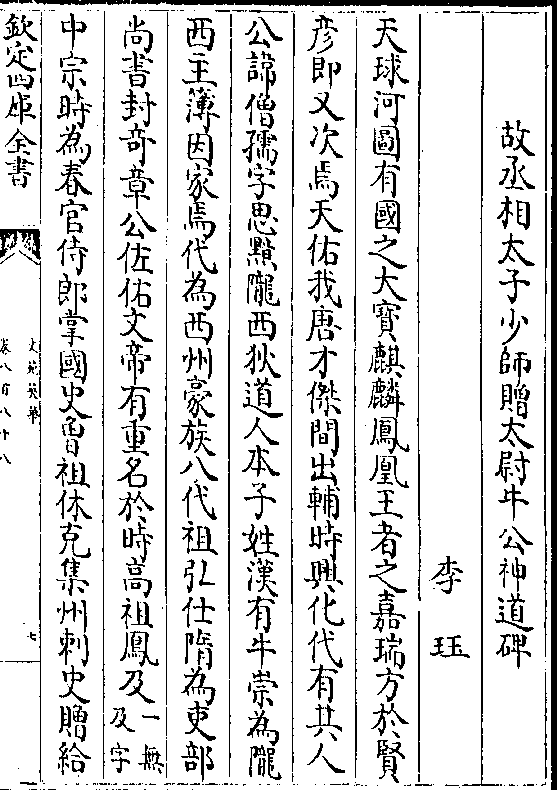 故丞相太子少師贈太尉牛公神道碑
李珏
天球河圖有國之大寳麒麟鳳凰王者之嘉瑞方於賢
彦即又次焉天佑我唐才傑間出輔時興化代有其人
公諱僧孺字思黯隴西狄道人本子姓漢有牛崇為隴
西主簿因家焉代為西州豪族八代祖弘仕隋為吏部
尚書封竒章公佐佑文帝有重名於時髙祖鳳及一無及字
中宗時為春官侍郎掌國史曾祖休克集州刺史贈給
欽定四庫全書
文苑英華
卷八百八十八
七